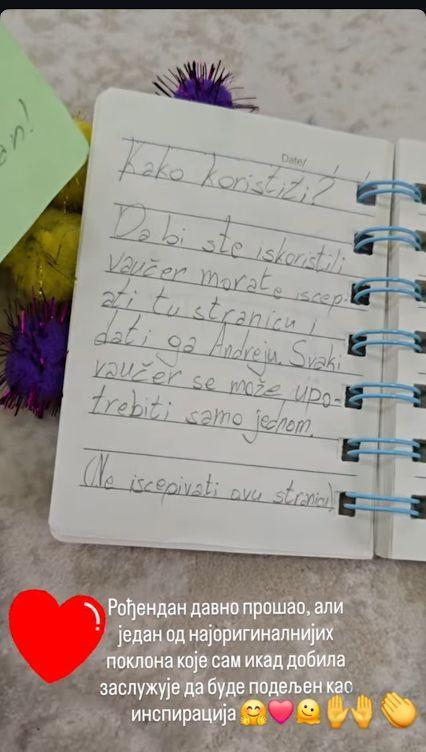 an!
Date/
Kako koristiti?
Da bi ste iskoristili
vaučer morate iscep-
ati tu stranicu i
dati ga Andreju. Svaki
vaučer se može upo-
trebiti samo jednom.
(Ne iscepivati ovu stranicu)
Рођендан давно прошао, али
један од најоригиналнијих
поклона које сам икад добила
заслужује да буде подељен као
инспирација 🤗💗🫠🙌👏